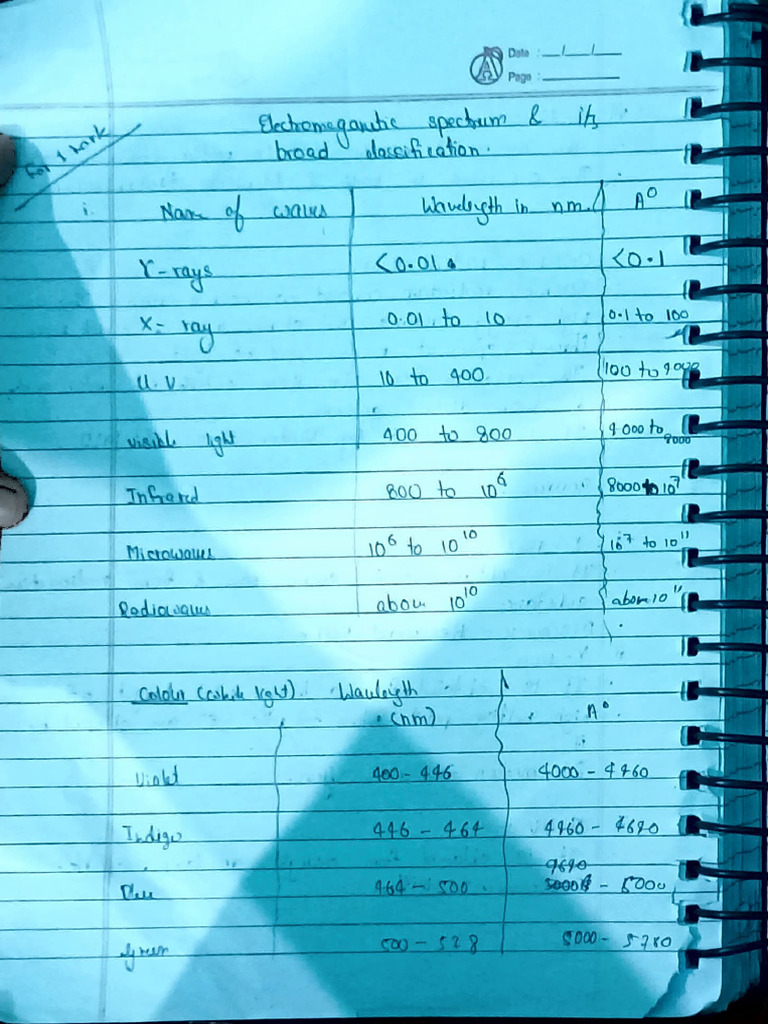 Date : __/__/__
Page : ______
Electromeganetic spectrum & its
broad classification.
For 1 mark
i. Name of waves Wavelength in nm. A⁰
γ-rays <0.01 <0.1
X-ray 0.01 to 10 0.1 to 100
U.V. 10 to 400 100 to 4000
visible light 400 to 800 4000 to 8000
Infrared 800 to 10⁶ 8000 to 10⁷
Microwaves 10⁶ to 10¹⁰ 10⁷ to 10¹¹
Radiowaves above 10¹⁰ above 10¹¹
Colour (white light). Wavelength
(nm) A⁰.
Violet 400 - 446 4000 - 4460
Indigo 446 - 464 4460 - 4640
4640
Blue 464 - 500 - 5000
Green 500 - 578 5000 - 5780